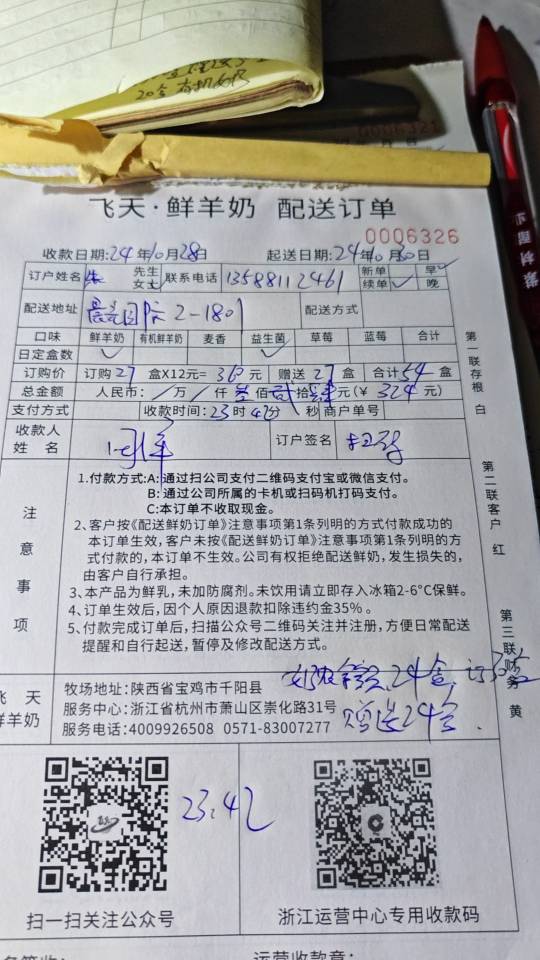 20盒有机奶
0006321
飞天·鲜羊奶 配送订单
0006326
收款日期:24年10月28日 起送日期:24年10月30日
订户姓名 朱 先生 女士 联系电话 13588112461 新单 续单 早 晚
配送地址 2-1801 配送方式
口味 鲜羊奶 有机鲜羊奶 麦香 益生菌 草莓 蓝莓 合计
日定盒数
订购价 订购27盒X12元= 元 赠送27盒 合计54盒
总金额 人民币: / 万 / 仟叁佰贰拾肆元(¥ 324 元)
支付方式 收款时间:23时42分 秒 商户单号
收款人姓名 订户签名
注意事项
1.付款方式:A:通过扫公司支付二维码支付宝或微信支付。
B:通过公司所属的卡机或扫码机打码支付。
C:本订单不收取现金。
2、客户按《配送鲜奶订单》注意事项第1条列明的方式付款成功的
本订单生效,客户未按《配送鲜奶订单》注意事项第1条列明的方
式付款的,本订单不生效。公司有权拒绝配送鲜奶,发生损失的,
由客户自行承担。
3、本产品为鲜乳,未加防腐剂。未饮用请立即存入冰箱2-6°C保鲜。
4、订单生效后,因个人原因退款扣除违约金35%。
5、付款完成订单后,扫描公众号二维码关注并注册,方便日常配送
提醒和自行起送,暂停及修改配送方式。
飞天
鲜羊奶
牧场地址:陕西省宝鸡市千阳县
服务中心:浙江省杭州市萧山区崇化路31号
服务电话:4009926508 0571-83007277
24盒
赠送24盒
23:42
扫一扫关注公众号
浙江运营中心专用收款码
运营收款章:
第一联存根 白
第二联客户 红
第三联财务 黄